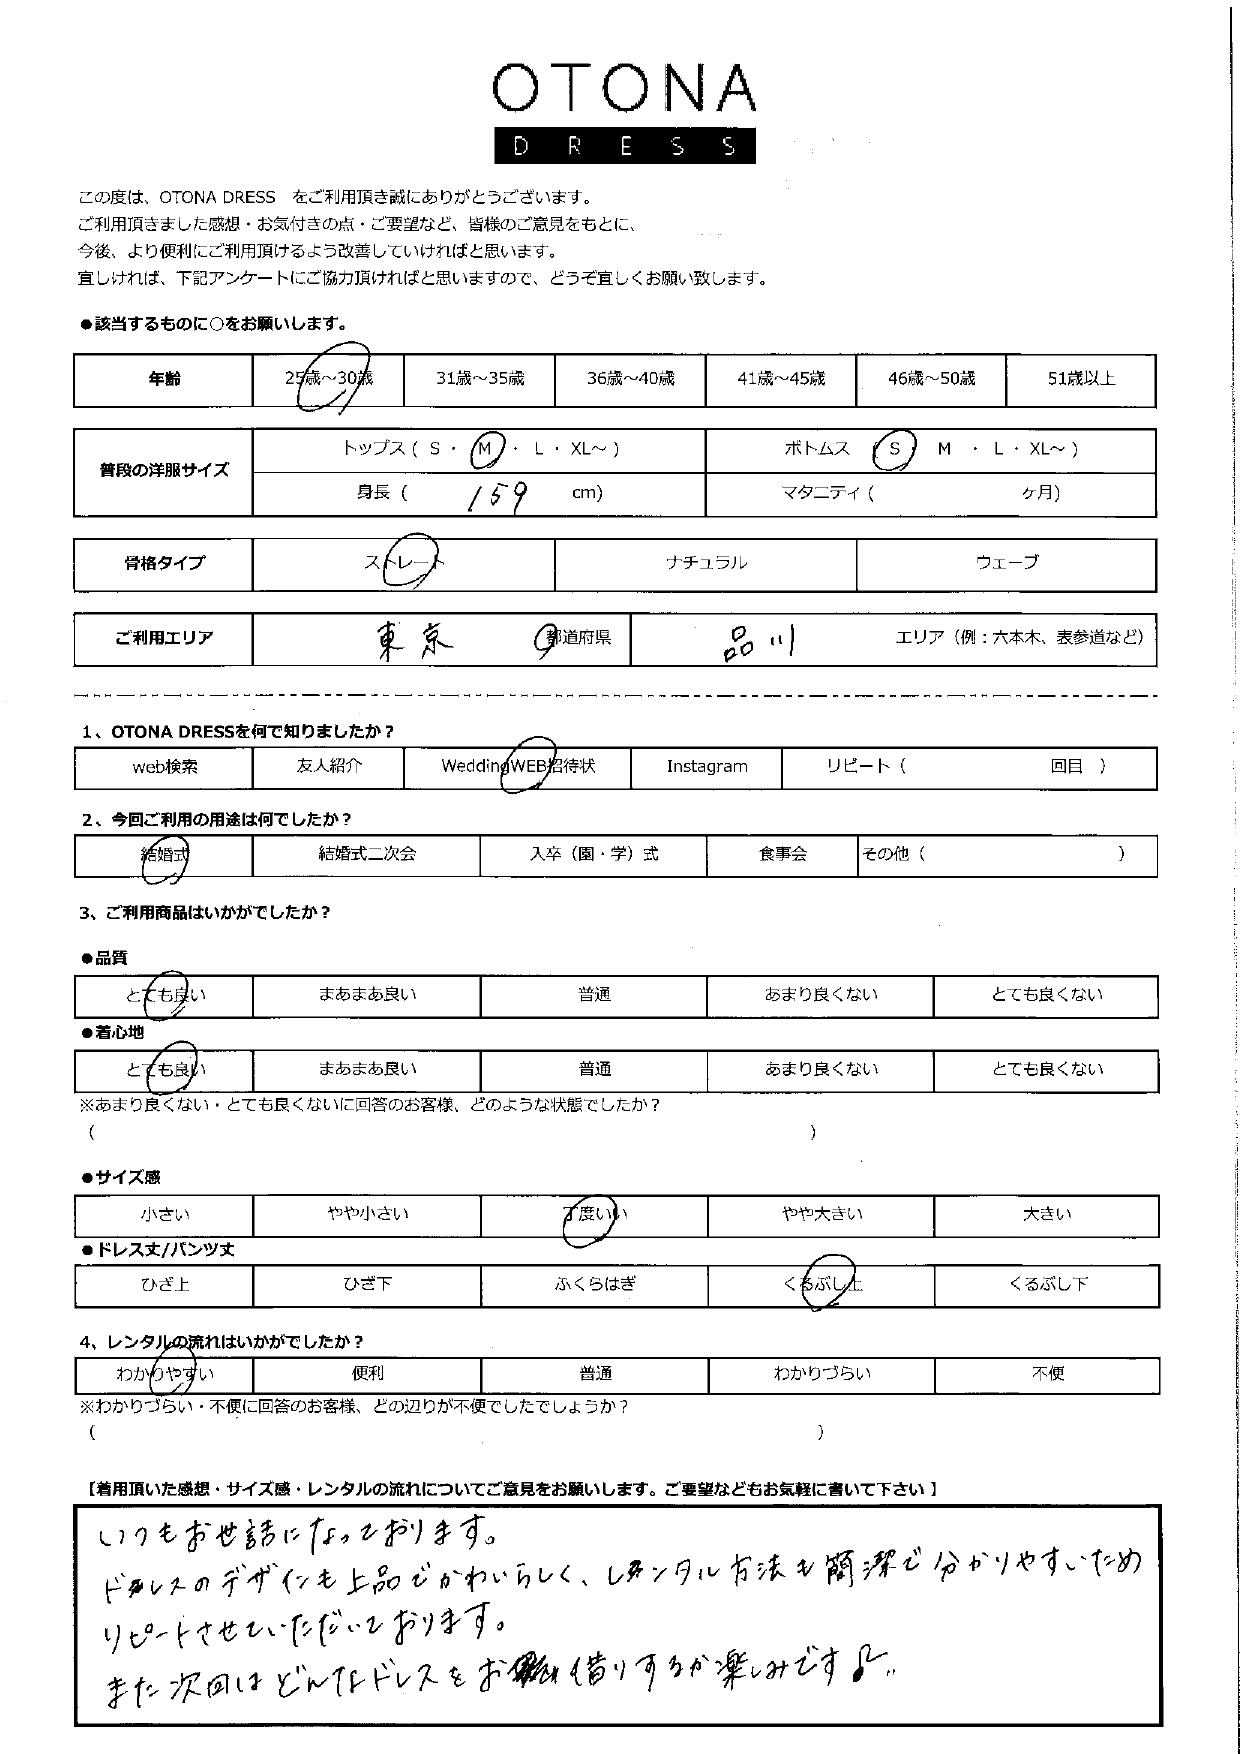 OTONA
DRESS
この度は、OTONA DRESS をご利用頂き誠にありがとうございます。
ご利用頂きました感想・お気付きの点・ご要望など、皆様のご意見をもとに、
今後、より便利にご利用頂けるよう改善していければと思います。
宜しければ、下記アンケートにご協力頂ければと思いますので、どうぞ宜しくお願い致します。
●該当するものに○をお願いします。
年齢 25歳～30歳 31歳～35歳 36歳～40歳 41歳～45歳 46歳～50歳 51歳以上
普段の洋服サイズ トップス ( S ・ M ・ L ・ XL～ ) ボトムス ( S M ・ L ・ XL～ )
身長 ( 159 cm) マタニティ ( ヶ月)
骨格タイプ ストレート ナチュラル ウェーブ
ご利用エリア 東京 都道府県 品川 エリア（例：六本木、表参道など）
1、OTONA DRESSを何で知りましたか？
web検索 友人紹介 WeddingWEB招待状 Instagram リピート（ 回目 ）
2、今回ご利用の用途は何でしたか？
結婚式 結婚式二次会 入卒（園・学）式 食事会 その他（ ）
3、ご利用商品はいかがでしたか？
●品質
とても良い まあまあ良い 普通 あまり良くない とても良くない
●着心地
とても良い まあまあ良い 普通 あまり良くない とても良くない
※あまり良くない・とても良くないに回答のお客様、どのような状態でしたか？
（ ）
●サイズ感
小さい やや小さい 丁度いい やや大きい 大きい
●ドレス丈/パンツ丈
ひざ上 ひざ下 ふくらはぎ くるぶし上 くるぶし下
4、レンタルの流れはいかがでしたか？
わかりやすい 便利 普通 わかりづらい 不便
※わかりづらい・不便に回答のお客様、どの辺りが不便でしたでしょうか？
（ ）
【着用頂いた感想・サイズ感・レンタルの流れについてご意見をお願いします。ご要望などもお気軽に書いて下さい】
いつもお世話になっております。
ドレスのデザインも上品でかわいらしく、レンタル方法も簡潔で分かりやすいため
リピートさせていただいております。
また次回はどんなドレスをお借りするか楽しみです♪